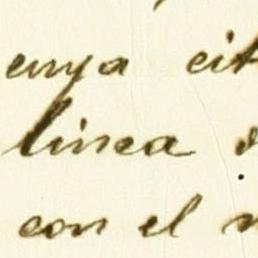 cuya cit
linea
con el